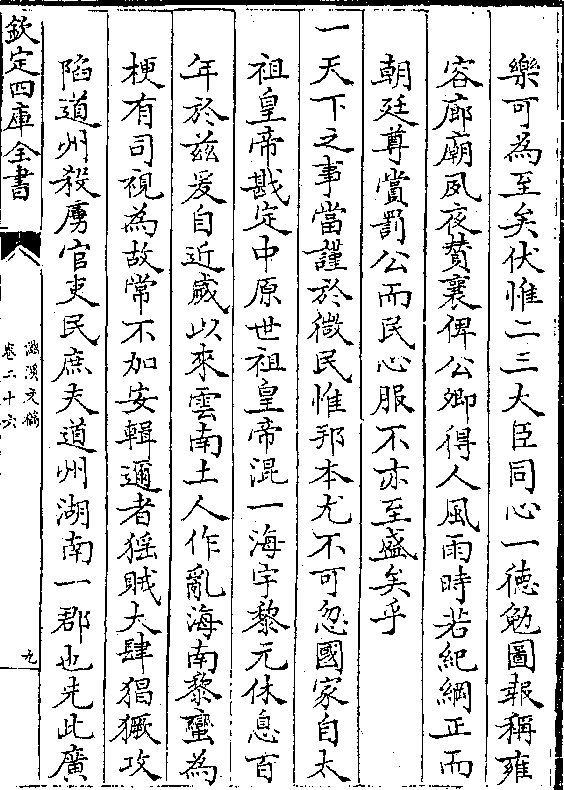 樂可為至矣伏惟二三大臣同心一德勉圖報稱雍
容廊廟夙夜賛襄俾公卿得人風雨時若紀綱正而
朝廷尊賞罰公而民心服不亦至盛矣乎
一天下之事當謹於微民惟邦本尤不可忽國家自太
祖皇帝戡定中原世祖皇帝混一海宇黎元休息百
年於兹爰自近歲以來雲南土人作亂海南黎蠻為
梗有司視為故常不加安輯邇者猺賊大肆猖獗攻
陷道州殺虜官吏民庶夫道州湖南一郡也先此廣
欽定四庫全書
滋溪文稿
卷二十六
九